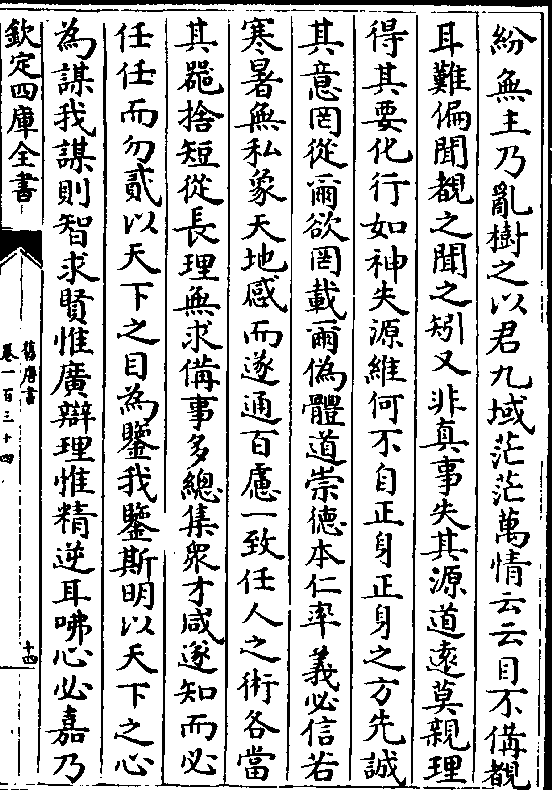 紛無主乃亂樹之以君九域茫茫萬情云云目不偹覩
耳難徧聞覩之聞之矧又非真事失其源道逺莫親理
得其要化行如神失源維何不自正身正身之方先誠
其意罔從爾欲罔載爾偽體道崇德本仁率義必信若
寒暑無私象天地感而遂通百慮一致任人之術各當
其器捨短從長理無求偹事多總集衆才咸遂知而必
任任而勿貳以天下之目為鑒我鑒斯明以天下之心
為謀我謀則智求賢惟廣辯理惟精逆耳咈心必嘉乃
欽定四庫全書
舊唐書
卷一百三十四
十四